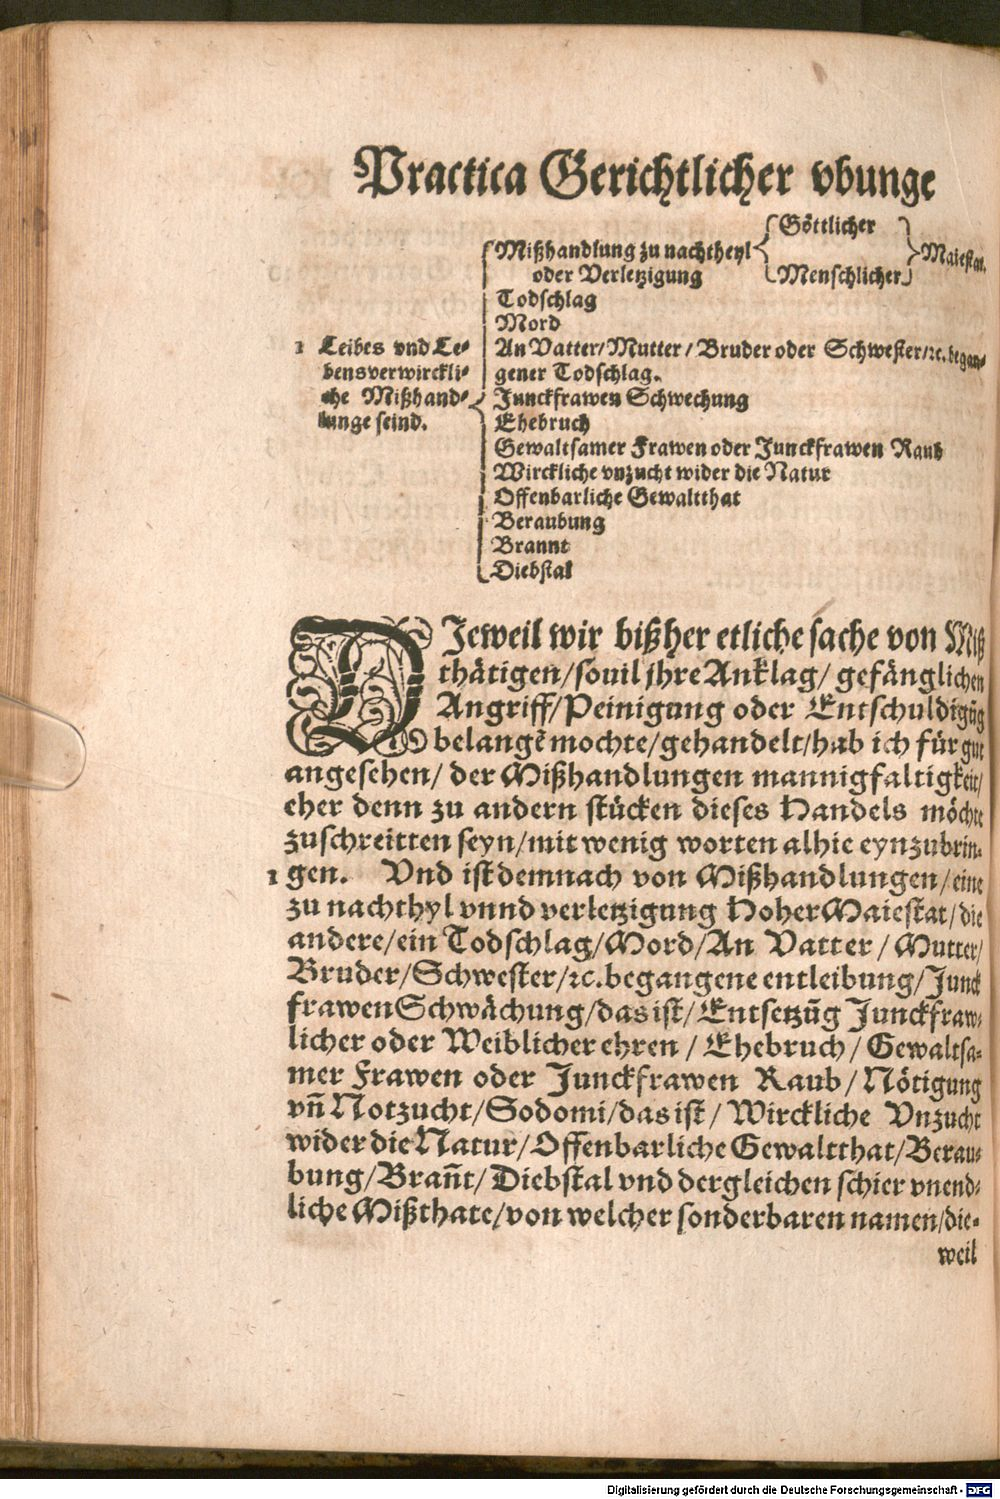 Practica Gerichtlicher vbunge
Göttlicher
Mißhandlung zu nachtheyl
Maiestat.
oder Verletzigung
Menschlicher
Todschlag
Mord
1 Leibes vnd Le-
bensverwirckli-
che Mißhand-
lunge seind.
An Vatter/Mutter/Bruder oder Schwester/ꝛc. began-
gener Todschlag.
Junckfrawen Schwechung
Ehebruch
Gewaltsamer Frawen oder Junckfrawen Raub
Wirckliche vnzucht wider die Natur
Offenbarliche Gewaltthat
Beraubung
Brannt
Diebstal
DJeweil wir bißher etliche sache von Miß
thätigen/souil jhre Anklag/ gefänglichen
Angriff/Peinigung oder Entschuldigūg
belangē mochte/gehandelt/hab ich für gut
angesehen/ der Mißhandlungen mannigfaltigkeit/
eher denn zu andern stücken dieses Handels möchte
zuschreitten seyn/mit wenig worten alhie eynzubrin-
1 gen. Vnd ist demnach von Mißhandlungen/eine
zu nachthyl vnnd verletzigung Hoher Maiestat/die
andere/ein Todschlag/Mord/An Vatter/Mutter/
Bruder/Schwester/ꝛc. begangene entleibung/Junck
frawen Schwächung/das ist/Entsetzūg Junckfraw-
licher oder Weiblicher ehren/Ehebruch/Gewaltsa-
mer Frawen oder Junckfrawen Raub/Nötigung
vñ Notzucht/Sodomi/das ist/Wirckliche Vnzucht
wider die Natur/Offenbarliche Gewaltthat/Berau-
bung/Brañt/Diebstal vnd dergleichen schier vnend-
liche Mißthate/von welcher sonderbaren namen/die-
weil
Digitalisierung gefördert durch die Deutsche Forschungsgemeinschaft - DFG